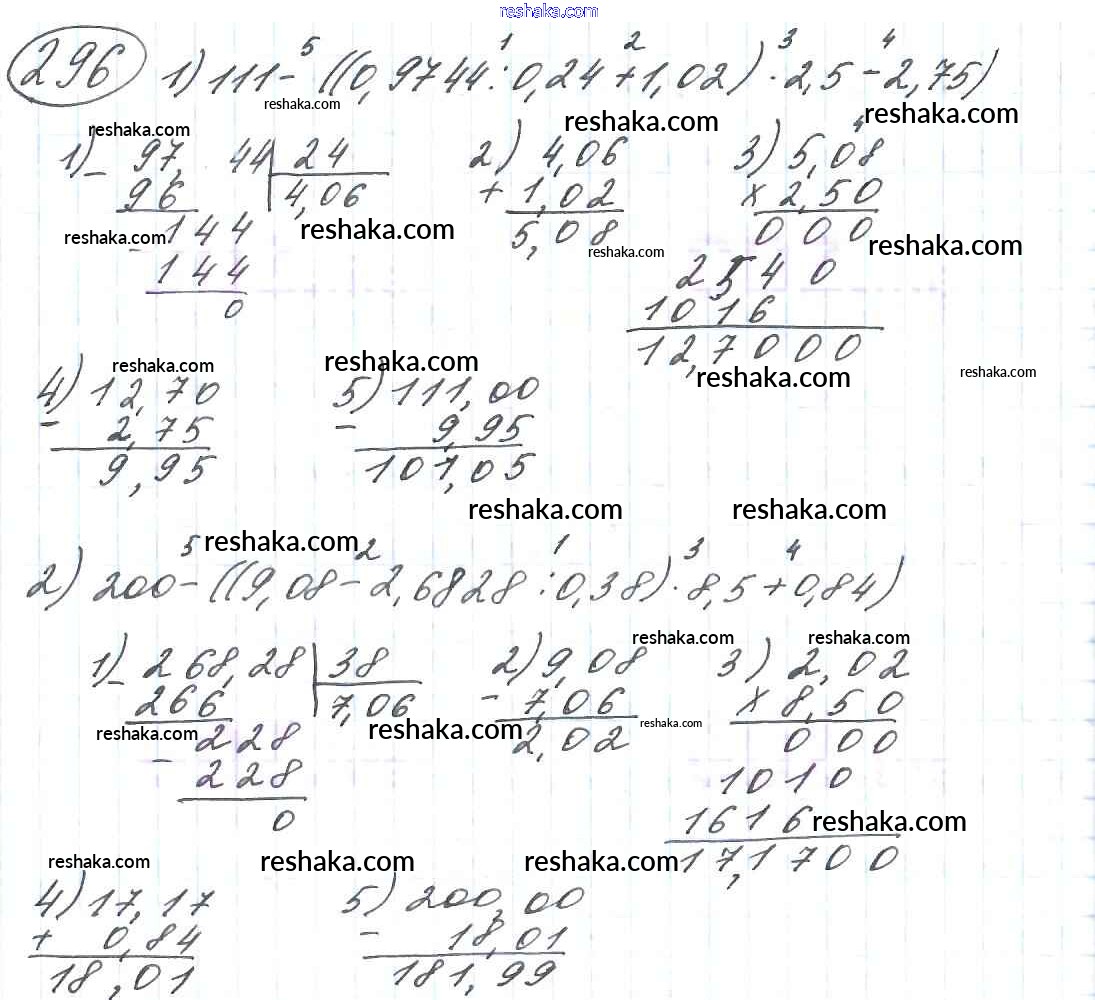 reshaka.com
296 1) 111 - ((0,9744 : 0,24 + 1,02) · 2,5 - 2,75)
5 1 2 3 4
reshaka.com
reshaka.com reshaka.com reshaka.com
1) 97,44 | 24 2) 4,06 3) 5,08
- 96 4,06 + 1,02 x 2,50
144 5,08 000
reshaka.com reshaka.com reshaka.com reshaka.com
- 144 2540
0 1016
127000
12,7000
reshaka.com reshaka.com reshaka.com reshaka.com
4) 12,70 5) 111,00
- 2,75 - 9,95
9,95 101,05
reshaka.com reshaka.com
reshaka.com
5 2 1 3 4
2) 200 - ((9,08 - 2,6828 : 0,38) · 8,5 + 0,84)
reshaka.com reshaka.com
1) 268,28 | 38 2) 9,08 3) 2,02
- 266 7,06 - 7,06 x 8,50
228 2,02 000
reshaka.com reshaka.com reshaka.com
- 228 1010
0 1616
reshaka.com
17,1700
reshaka.com reshaka.com reshaka.com
4) 17,17 5) 200,00
+ 0,84 - 18,01
18,01 181,99